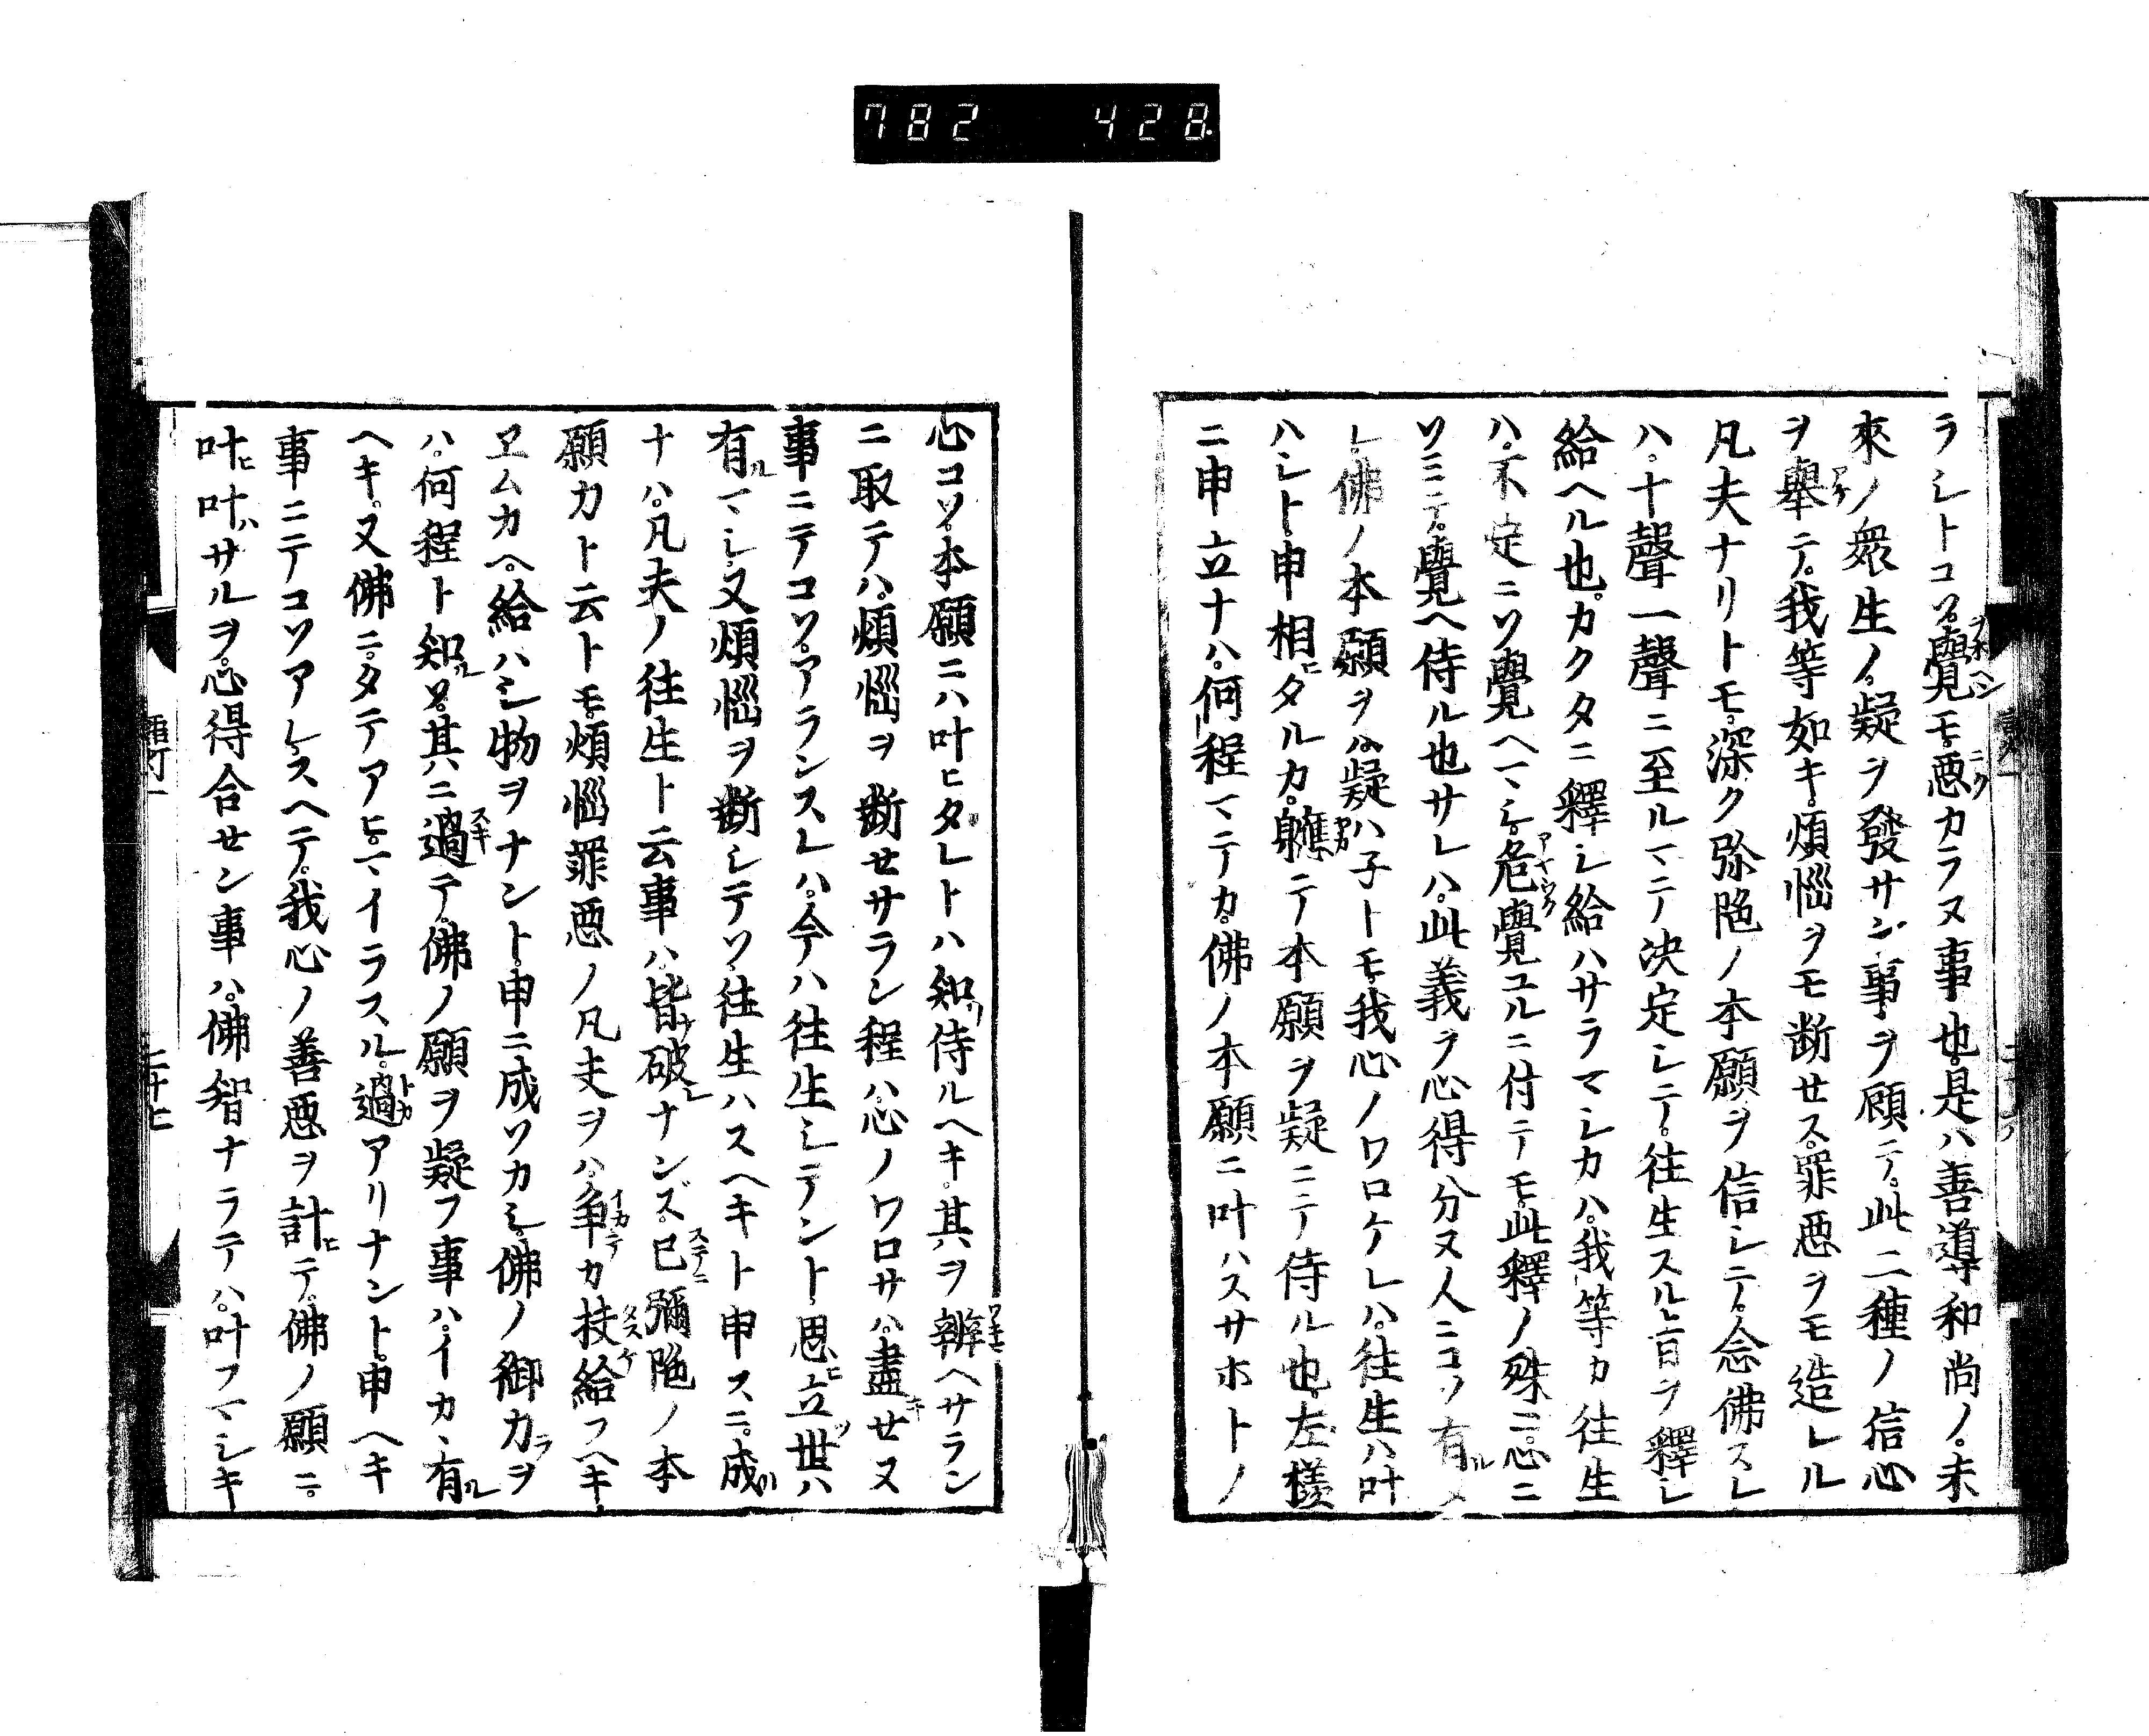 782 428
ラシトコソ覺モ悪カラヌ事也是ハ善導和尚ノ未
來ノ衆生ノ疑ヲ發サン事ヲ顧テ此二種ノ信心
ヲ舉テ我等如キ煩惱ヲモ断セス罪悪ヲモ造レル
凡夫ナリトモ深ク弥陁ノ本願ヲ信シテ念佛スレ
ハ十聲一聲ニ至ルマテ决定シテ往生スル旨ヲ釋シ
給ヘル也カクタニ釋シ給ハサラマシカハ我等カ往生
ハ不定ニソ覺ヘマシ危覺ユルニ付テモ此釋ノ殊ニ心ニ
ソミテ覺ヘ侍ル也サレハ此義ヲ心得分ヌ人ニコソ有メ
レ佛ノ本願ヲハ疑ハ子トモ我心ノワロケレハ往生ハ叶
ハシト申相ヒタルカ軈テ本願ヲ疑ニテ侍ル也左様
ニ申立ナハ何程マテカ佛ノ本願ニ叶ハスサホトノ
心コソ本願ニハ叶ヒタレトハ知侍ルヘキ其ヲ辨ヘサラン
ニ取テハ煩惱ヲ断セサラン程ハ心ノワロサハ盡セヌ
事ニテコソアランスレハ今ハ往生シテント思ヒ立世ハ
有ルマシ又煩惱ヲ断シテソ往生ハスヘキト申スニ成
ナハ凡夫ノ往生ト云事ハ皆破レナンズ已彌陁ノ本
願カト云トモ煩惱罪悪ノ凡夫ヲハ争カ扶給フヘキ
ヱムカヘ給ハシ物ヲナント申ニ成ソカシ佛ノ御力ヲ
ハ何程ト知ルソ其ニ過テ佛ノ願ヲ疑フ事ハイカヽ有ル
ヘキ又佛ニタテアヒマイラスル過アリナント申ヘキ
事ニテコソアレスヘテ我心ノ善悪ヲ計ヒテ佛ノ願ニ
叶ヒ叶ハサルヲ心得合セン事ハ佛智ナラテハ叶フマシキ
二十七